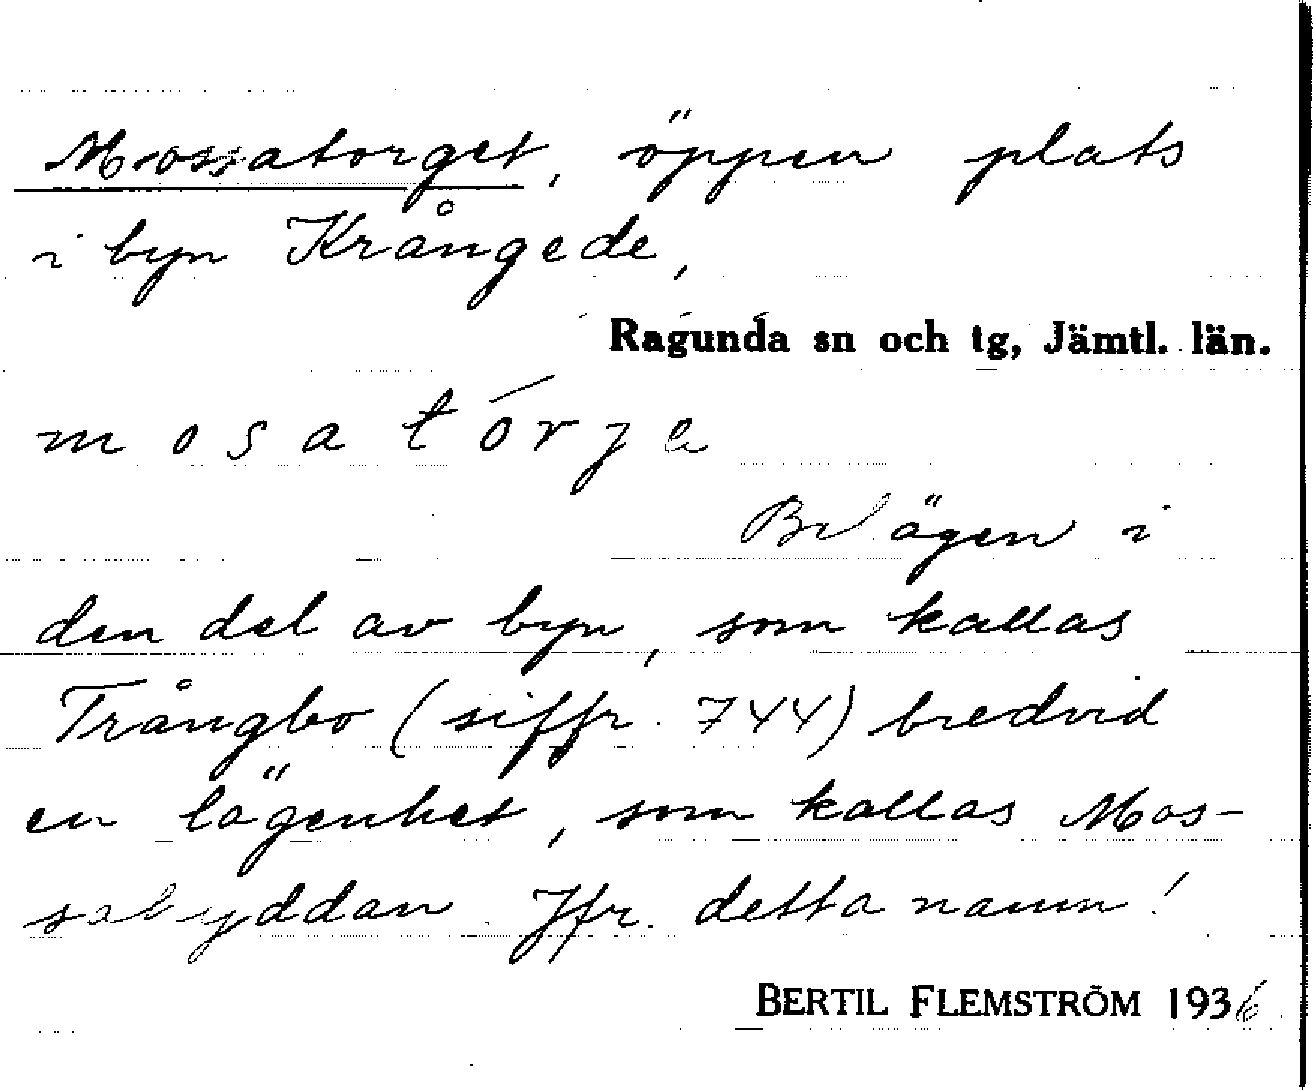 Mossatorget, öppen plats
i byn Krångede,
Ragunda sn och tg, Jämtl. län.
mosatórje
Belägen i
den del av byn, som kallas
Trångbo (siffr. 744) bredvid
en lägenhet, som kallas Mos-
sabyddan. Jfr. detta namn!
BERTIL FLEMSTRÖM 1936